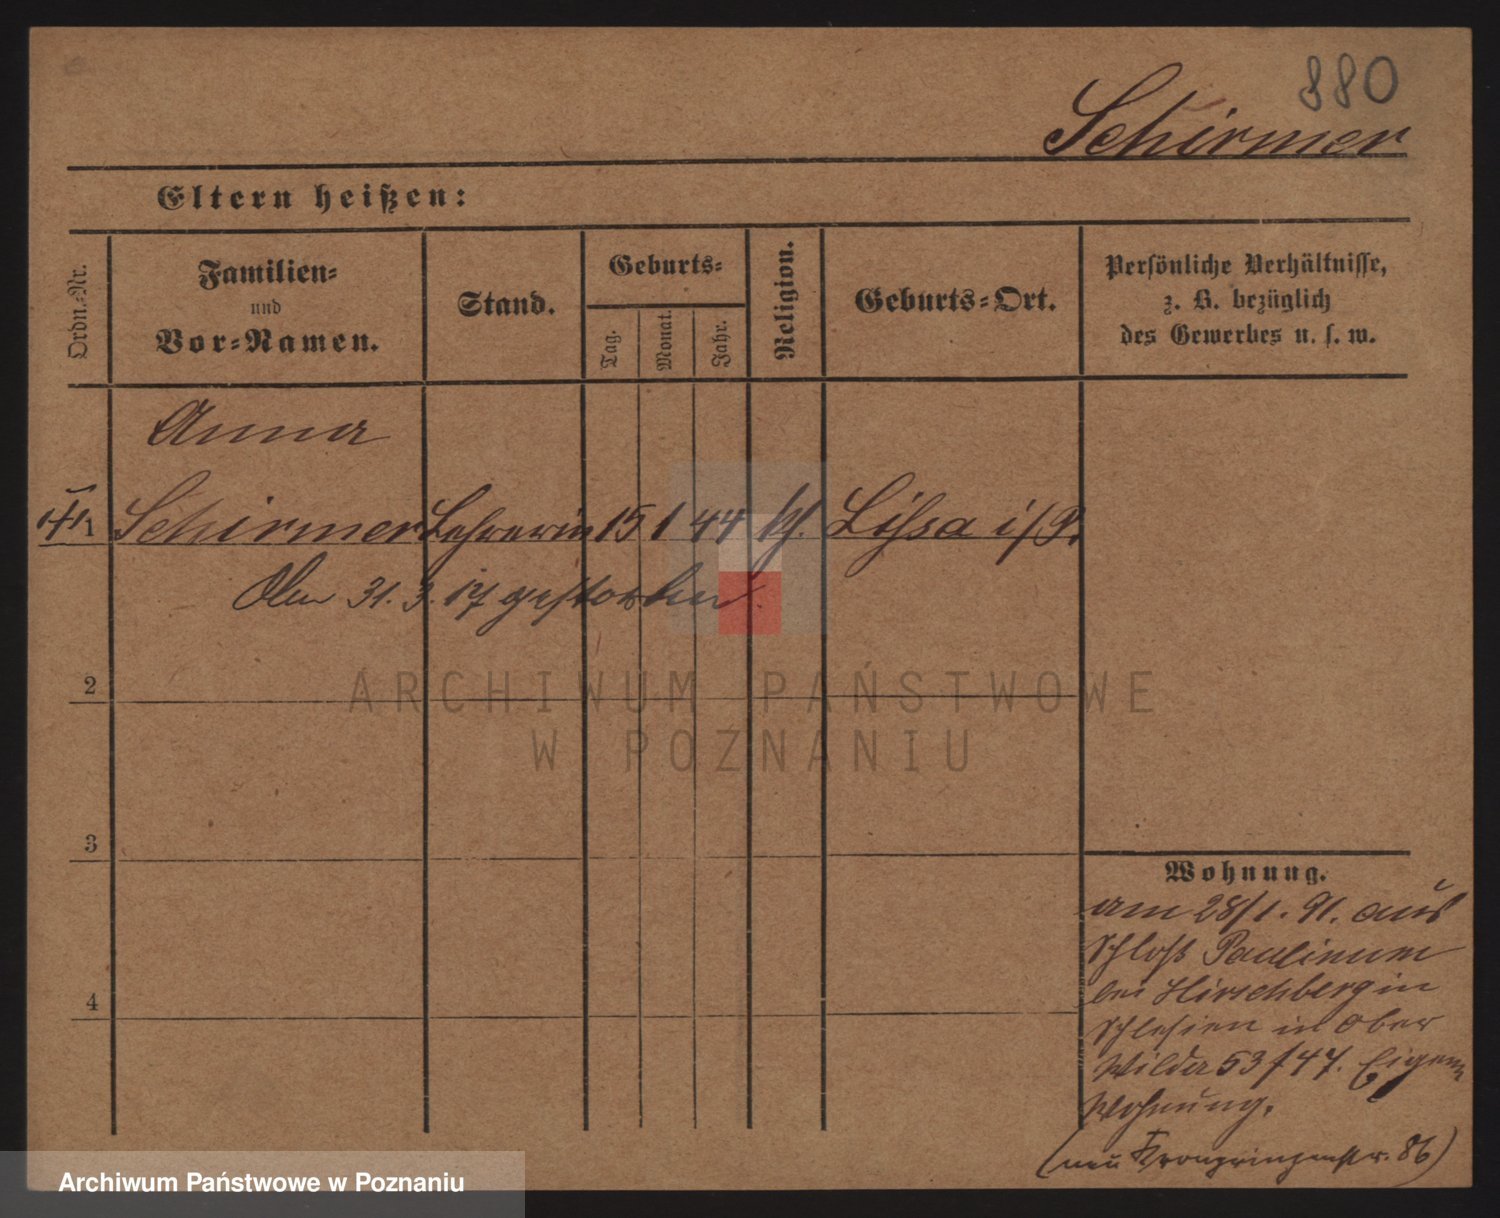 880
Schirmer
Eltern heißen:
Ordn.=Nr.
Familien=
und
Vor=Namen.
Stand.
Geburts=
Tag.
Monat.
Jahr.
Religion.
Geburts=Ort.
Persönliche Verhältnisse,
z. B. bezüglich
des Gewerbes u. s. w.
Anna
1 Schirmer Lehrerin 15 1 44 Lissa i/P.
31. 3. 17 gestorben.
2
ARCHIWUM PAŃSTWOWE
W POZNANIU
3
4
Wohnung.
am 28/1. 91. aus
Schloß Paulinum
bei Hirschberg in
Schlesien in Ober
Wilda 53/47. Eigene
Wohnung.
(neu Kronprinzenstr. 86)
Archiwum Państwowe w Poznaniu